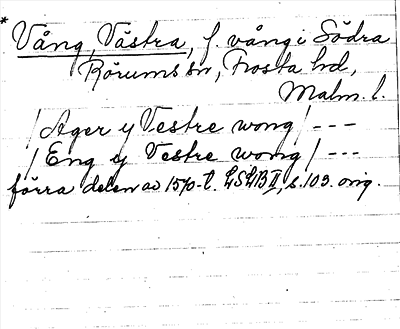 * Vång, Västra, f. vång i Södra
Rörums sn, Frosta hd,
Malm. l.
/ Ager y Vestre wong / ---
/ Eng y Vestre wong / ---
förra delen av 1570-t. LSLB II, s. 103. orig.